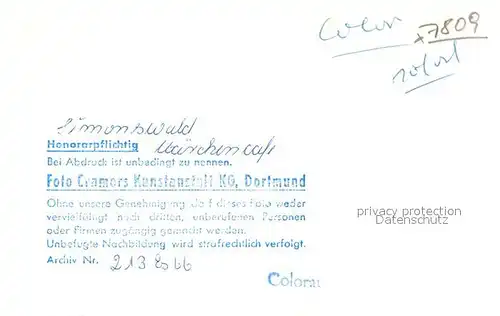 Color
x 7809
sofort
Simonswald
Honorarpflichtig Märchencafe
Bei Abdruck ist unbedingt zu nennen.
Foto Cramers Kunstanstalt KG, Dortmund
Ohne unsere Genehmigung darf dieses Foto weder
vervielfältigt noch dritten, unberufenen Personen
oder Firmen zugängig gemacht werden.
Unbefugte Nachbildung wird strafrechtlich verfolgt.
Archiv Nr. 213 8066
privacy protection
Datenschutz